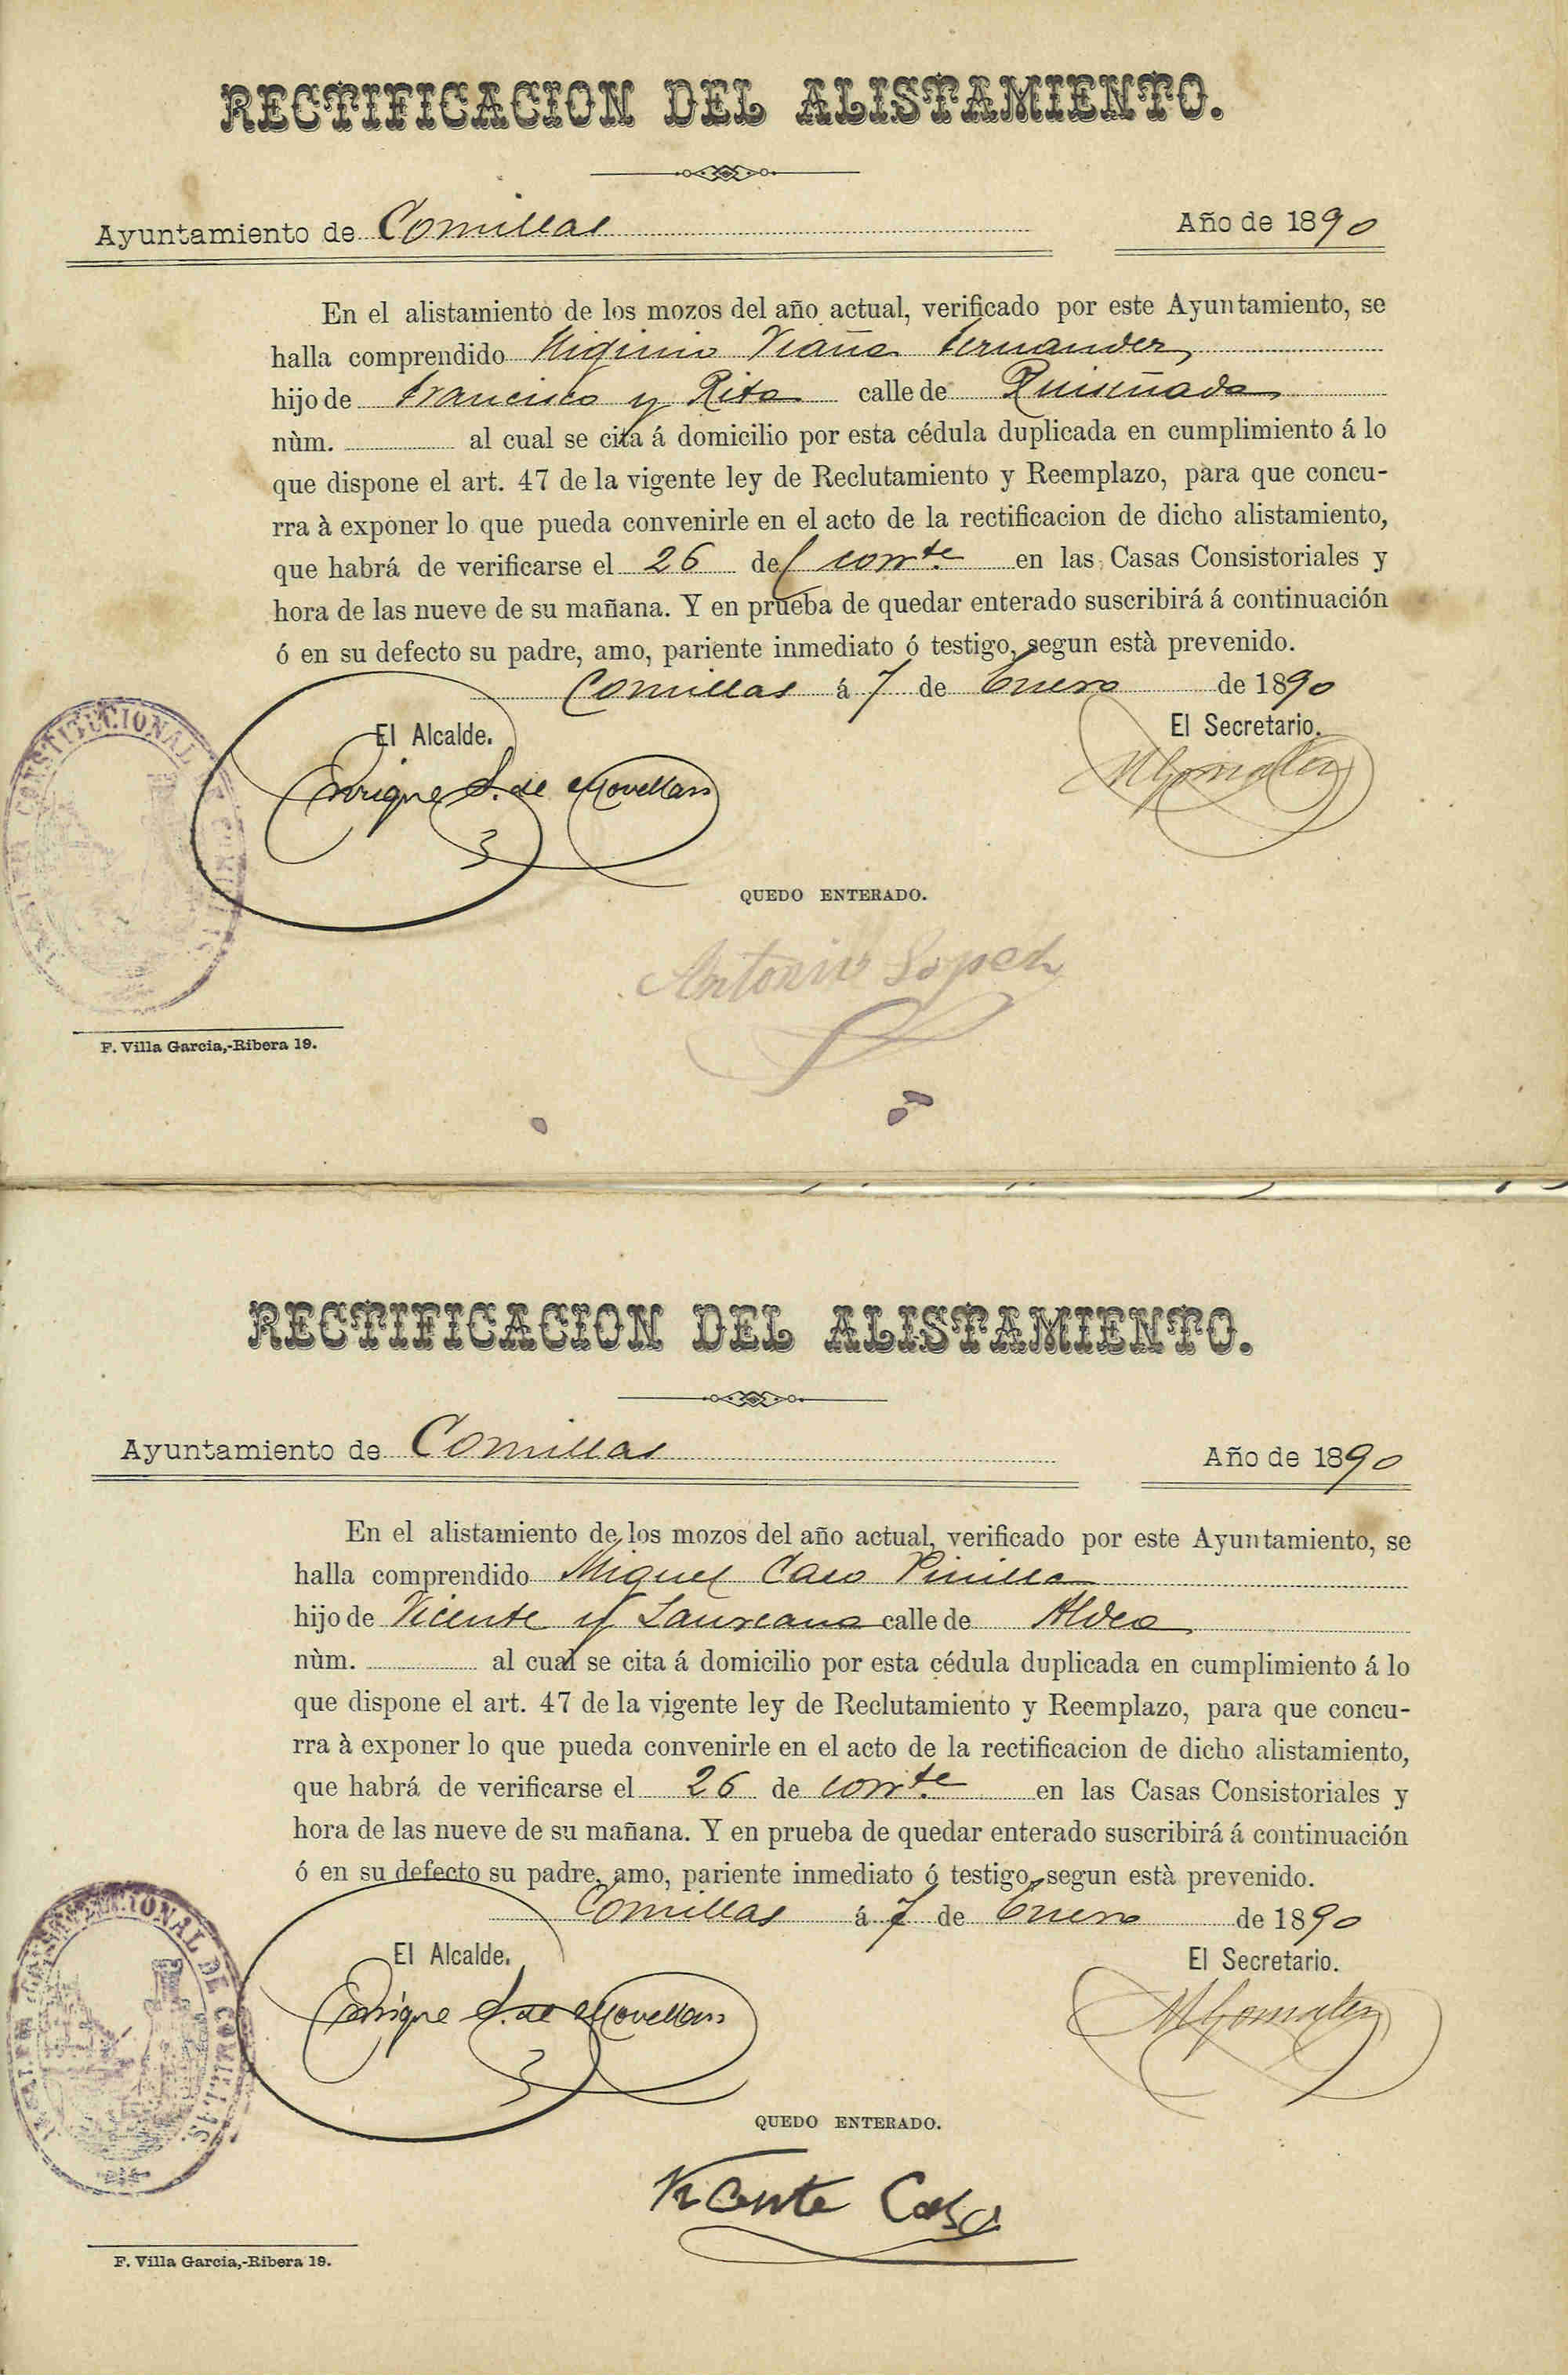 RECTIFICACION DEL ALISTAMIENTO.
Ayuntamiento de Comillas Año de 1890
En el alistamiento de los mozos del año actual, verificado por este Ayuntamiento, se
halla comprendido Higinio Viaña Fernandez,
hijo de Francisco y Rita calle de Ruiseñada
nùm. al cual se cita á domicilio por esta cédula duplicada en cumplimiento á lo
que dispone el art. 47 de la vigente ley de Reclutamiento y Reemplazo, para que concu-
rra à exponer lo que pueda convenirle en el acto de la rectificacion de dicho alistamiento,
que habrá de verificarse el 26 del corrte. en las Casas Consistoriales y
hora de las nueve de su mañana. Y en prueba de quedar enterado suscribirá á continuación
ó en su defecto su padre, amo, pariente inmediato ó testigo, segun està prevenido.
Comillas á 7 de Enero de 1890
El Alcalde. El Secretario.
Enrique S. de Movellan MGonzalez
QUEDO ENTERADO.
Antonio Lopez
F. Villa Garcia,-Ribera 19.
RECTIFICACION DEL ALISTAMIENTO.
Ayuntamiento de Comillas Año de 1890
En el alistamiento de los mozos del año actual, verificado por este Ayuntamiento, se
halla comprendido Miguel Caso Pinilla
hijo de Vicente y Laureana calle de Aldea
nùm. al cual se cita á domicilio por esta cédula duplicada en cumplimiento á lo
que dispone el art. 47 de la vigente ley de Reclutamiento y Reemplazo, para que concu-
rra à exponer lo que pueda convenirle en el acto de la rectificacion de dicho alistamiento,
que habrá de verificarse el 26 de corrte. en las Casas Consistoriales y
hora de las nueve de su mañana. Y en prueba de quedar enterado suscribirá á continuación
ó en su defecto su padre, amo, pariente inmediato ó testigo, segun està prevenido.
Comillas á 7 de Enero de 1890
El Alcalde. El Secretario.
Enrique S. de Movellan MGonzalez
QUEDO ENTERADO.
Vicente Caso
F. Villa Garcia,-Ribera 19.